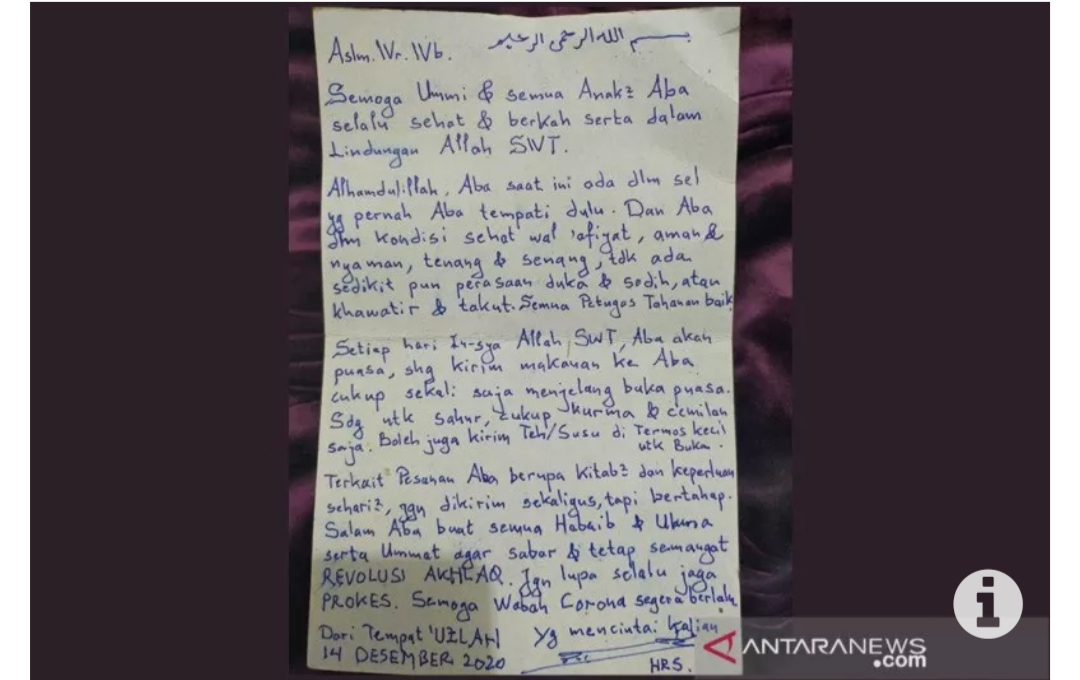 بسم الله الرحمن الرحيم
Aslm. Wr. Wb.
Semoga Ummi & semua Anak² Aba
selalu sehat & berkah serta dalam
Lindungan Allah SWT.
Alhamdulillah, Aba saat ini ada dlm sel
yg pernah Aba tempati dulu. Dan Aba
dlm kondisi sehat wal 'afiyat, aman &
nyaman, tenang & senang, tdk ada
sedikit pun perasaan duka & sedih, atau
khawatir & takut. Semua Petugas Tahanan baik
Setiap hari In-sya Allah SWT, Aba akan
puasa, shg kirim makanan ke Aba
cukup sekali saja menjelang buka puasa.
Sdg utk Sahur, cukup kurma & cemilan
saja. Boleh juga kirim Teh/Susu di Termos kecil
utk Buka.
Terkait Pesanan Aba berupa kitab² dan keperluan
sehari², jgn dikirim sekaligus, tapi bertahap.
Salam Aba buat semua Habaib & Ulama
serta Ummat agar sabar & tetap semangat
REVOLUSI AKHLAQ. Jgn lupa selalu jaga
PROKES. Semoga Wabah Corona segera berlalu
Dari Tempat 'UZLAH
14 DESEMBER 2020
Yg mencintai kalian
HRS.
ANTARANEWS
.com